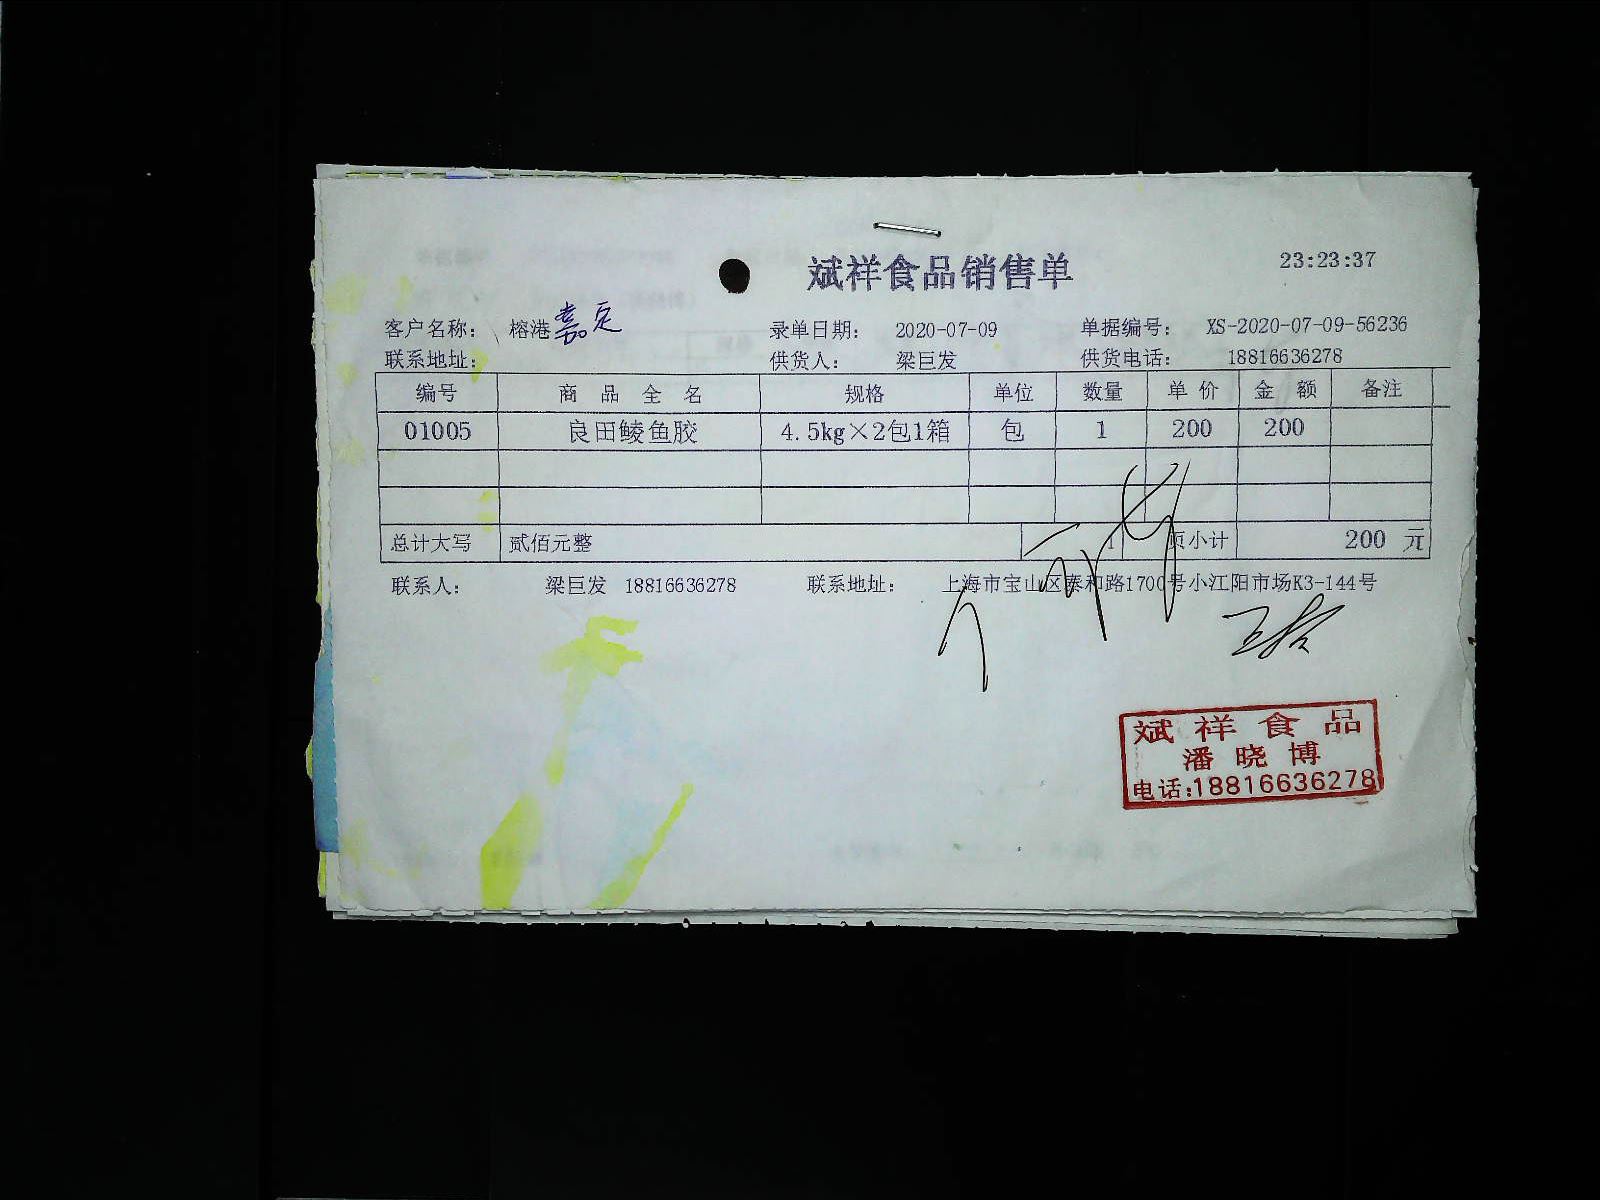 斌祥食品销售单 23:23:37
客户名称： 榕港嘉定 录单日期： 2020-07-09 单据编号： XS-2020-07-09-56236
联系地址： 供货人： 梁巨发 供货电话： 18816636278
编号 商品全名 规格 单位 数量 单价 金额 备注
01005 良田鲮鱼胶 4.5kg×2包1箱 包 1 200 200
总计大写 贰佰元整 1 页小计 200 元
联系人： 梁巨发 18816636278 联系地址： 上海市宝山区泰和路1700号小江阳市场K3-144号
斌祥食品
潘晓博
电话:18816636278